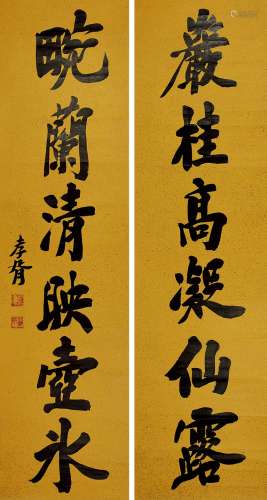 巖桂高凝仙露
畹蘭清映壺冰
孝胥